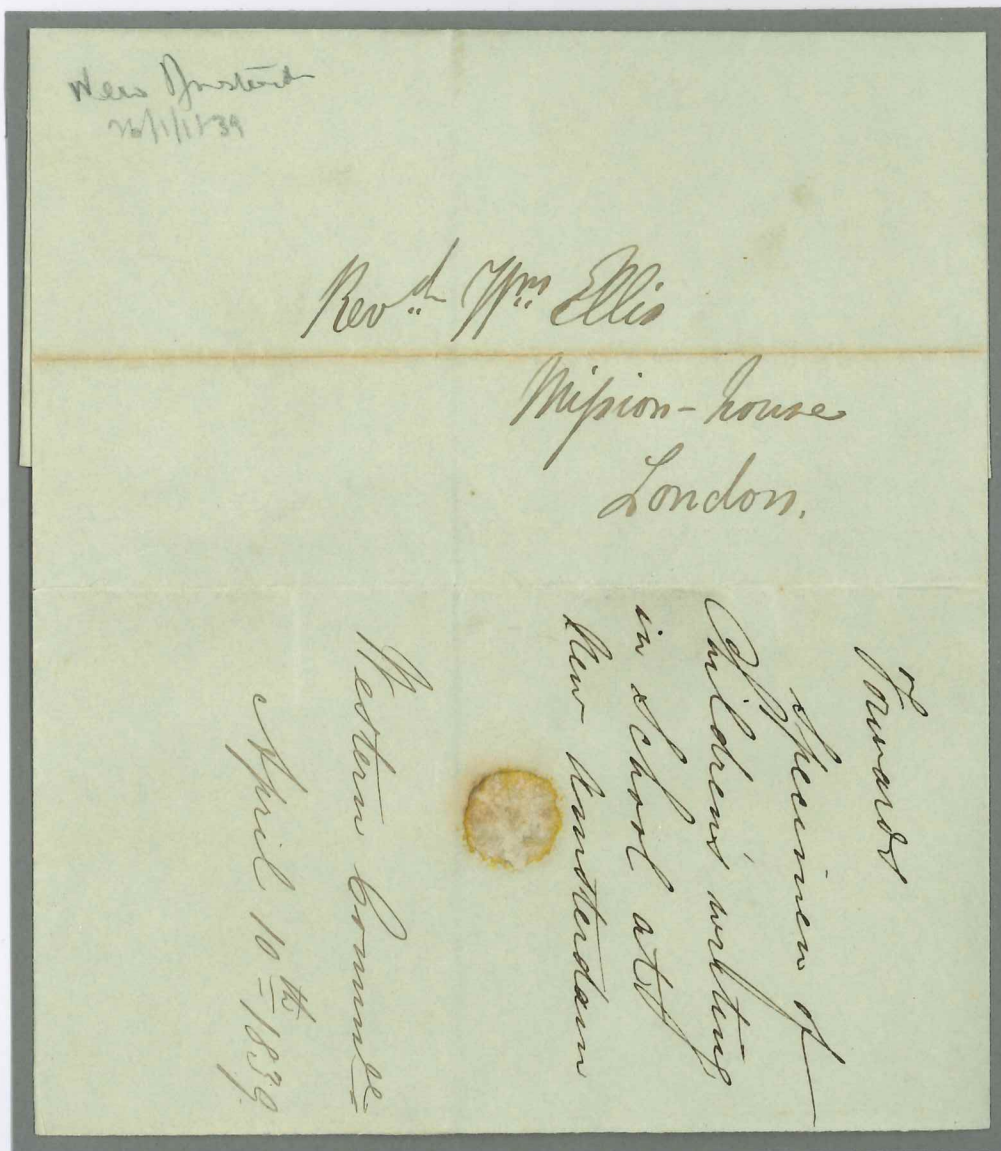 New Amsterd
26/1/1839
Revd Wm Ellis
Mission-house
London.
Forwards
Specimen of
Children's writing
in School at
New Amsterdam
Western Commee
April 10th 1839.